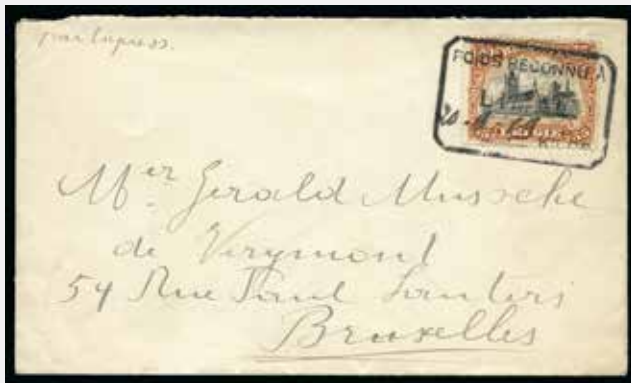 par Express.
POIDS RECONNU A
Mer Gerald Mussche
de Verymont
54 Rue Paul Lauters
Bruxelles